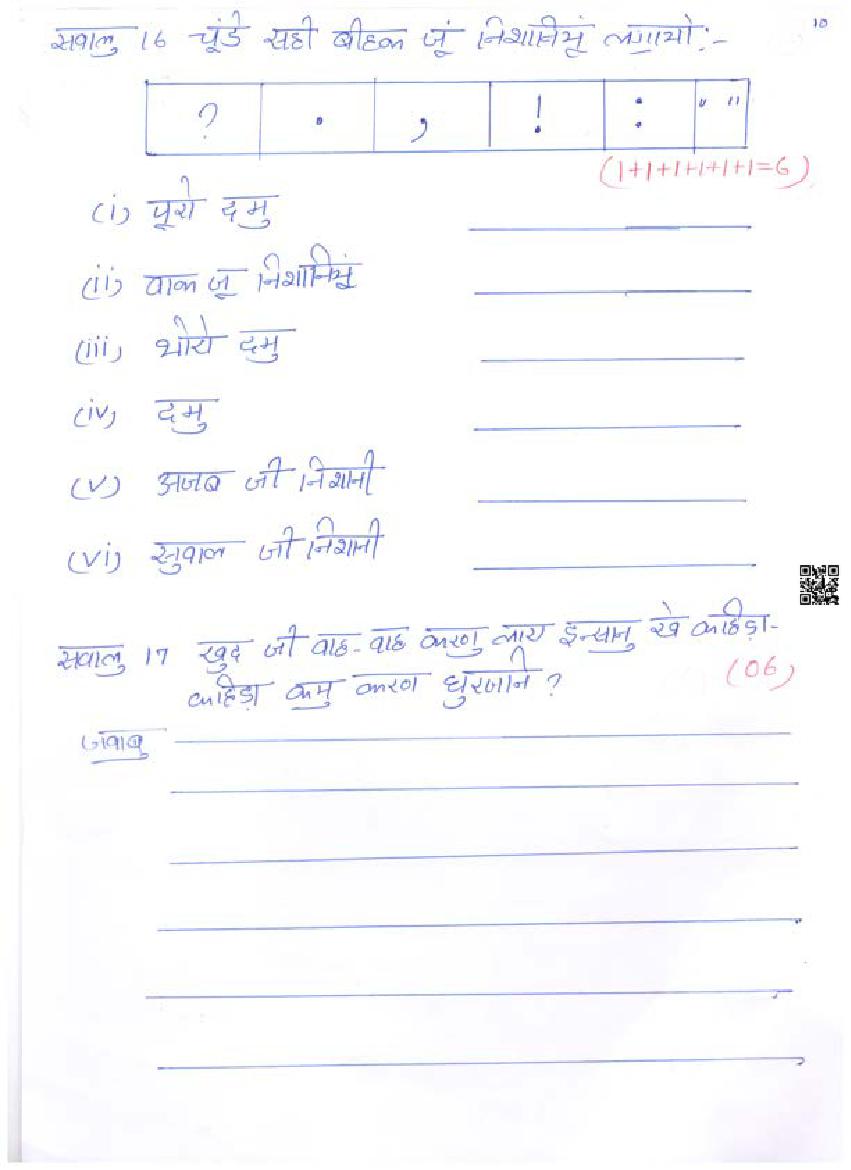 10
सवालु 16 चूंडे सही बीहक जूं निशानियूं लगायो:-
? . , ! : " "
(1+1+1+1+1+1=6)
(i) पूरो दमु
(ii) वाक जू निशानियूं
(iii) थोरो दमु
(iv) दमु
(v) अजब जी निशानी
(vi) सुवाल जी निशानी
सवालु 17 खुद जी वाह-वाह करणु लाय इन्सानु खे कहिड़ा-
कहिड़ा कमु करण घुरजनि ? (06)
जवाबु